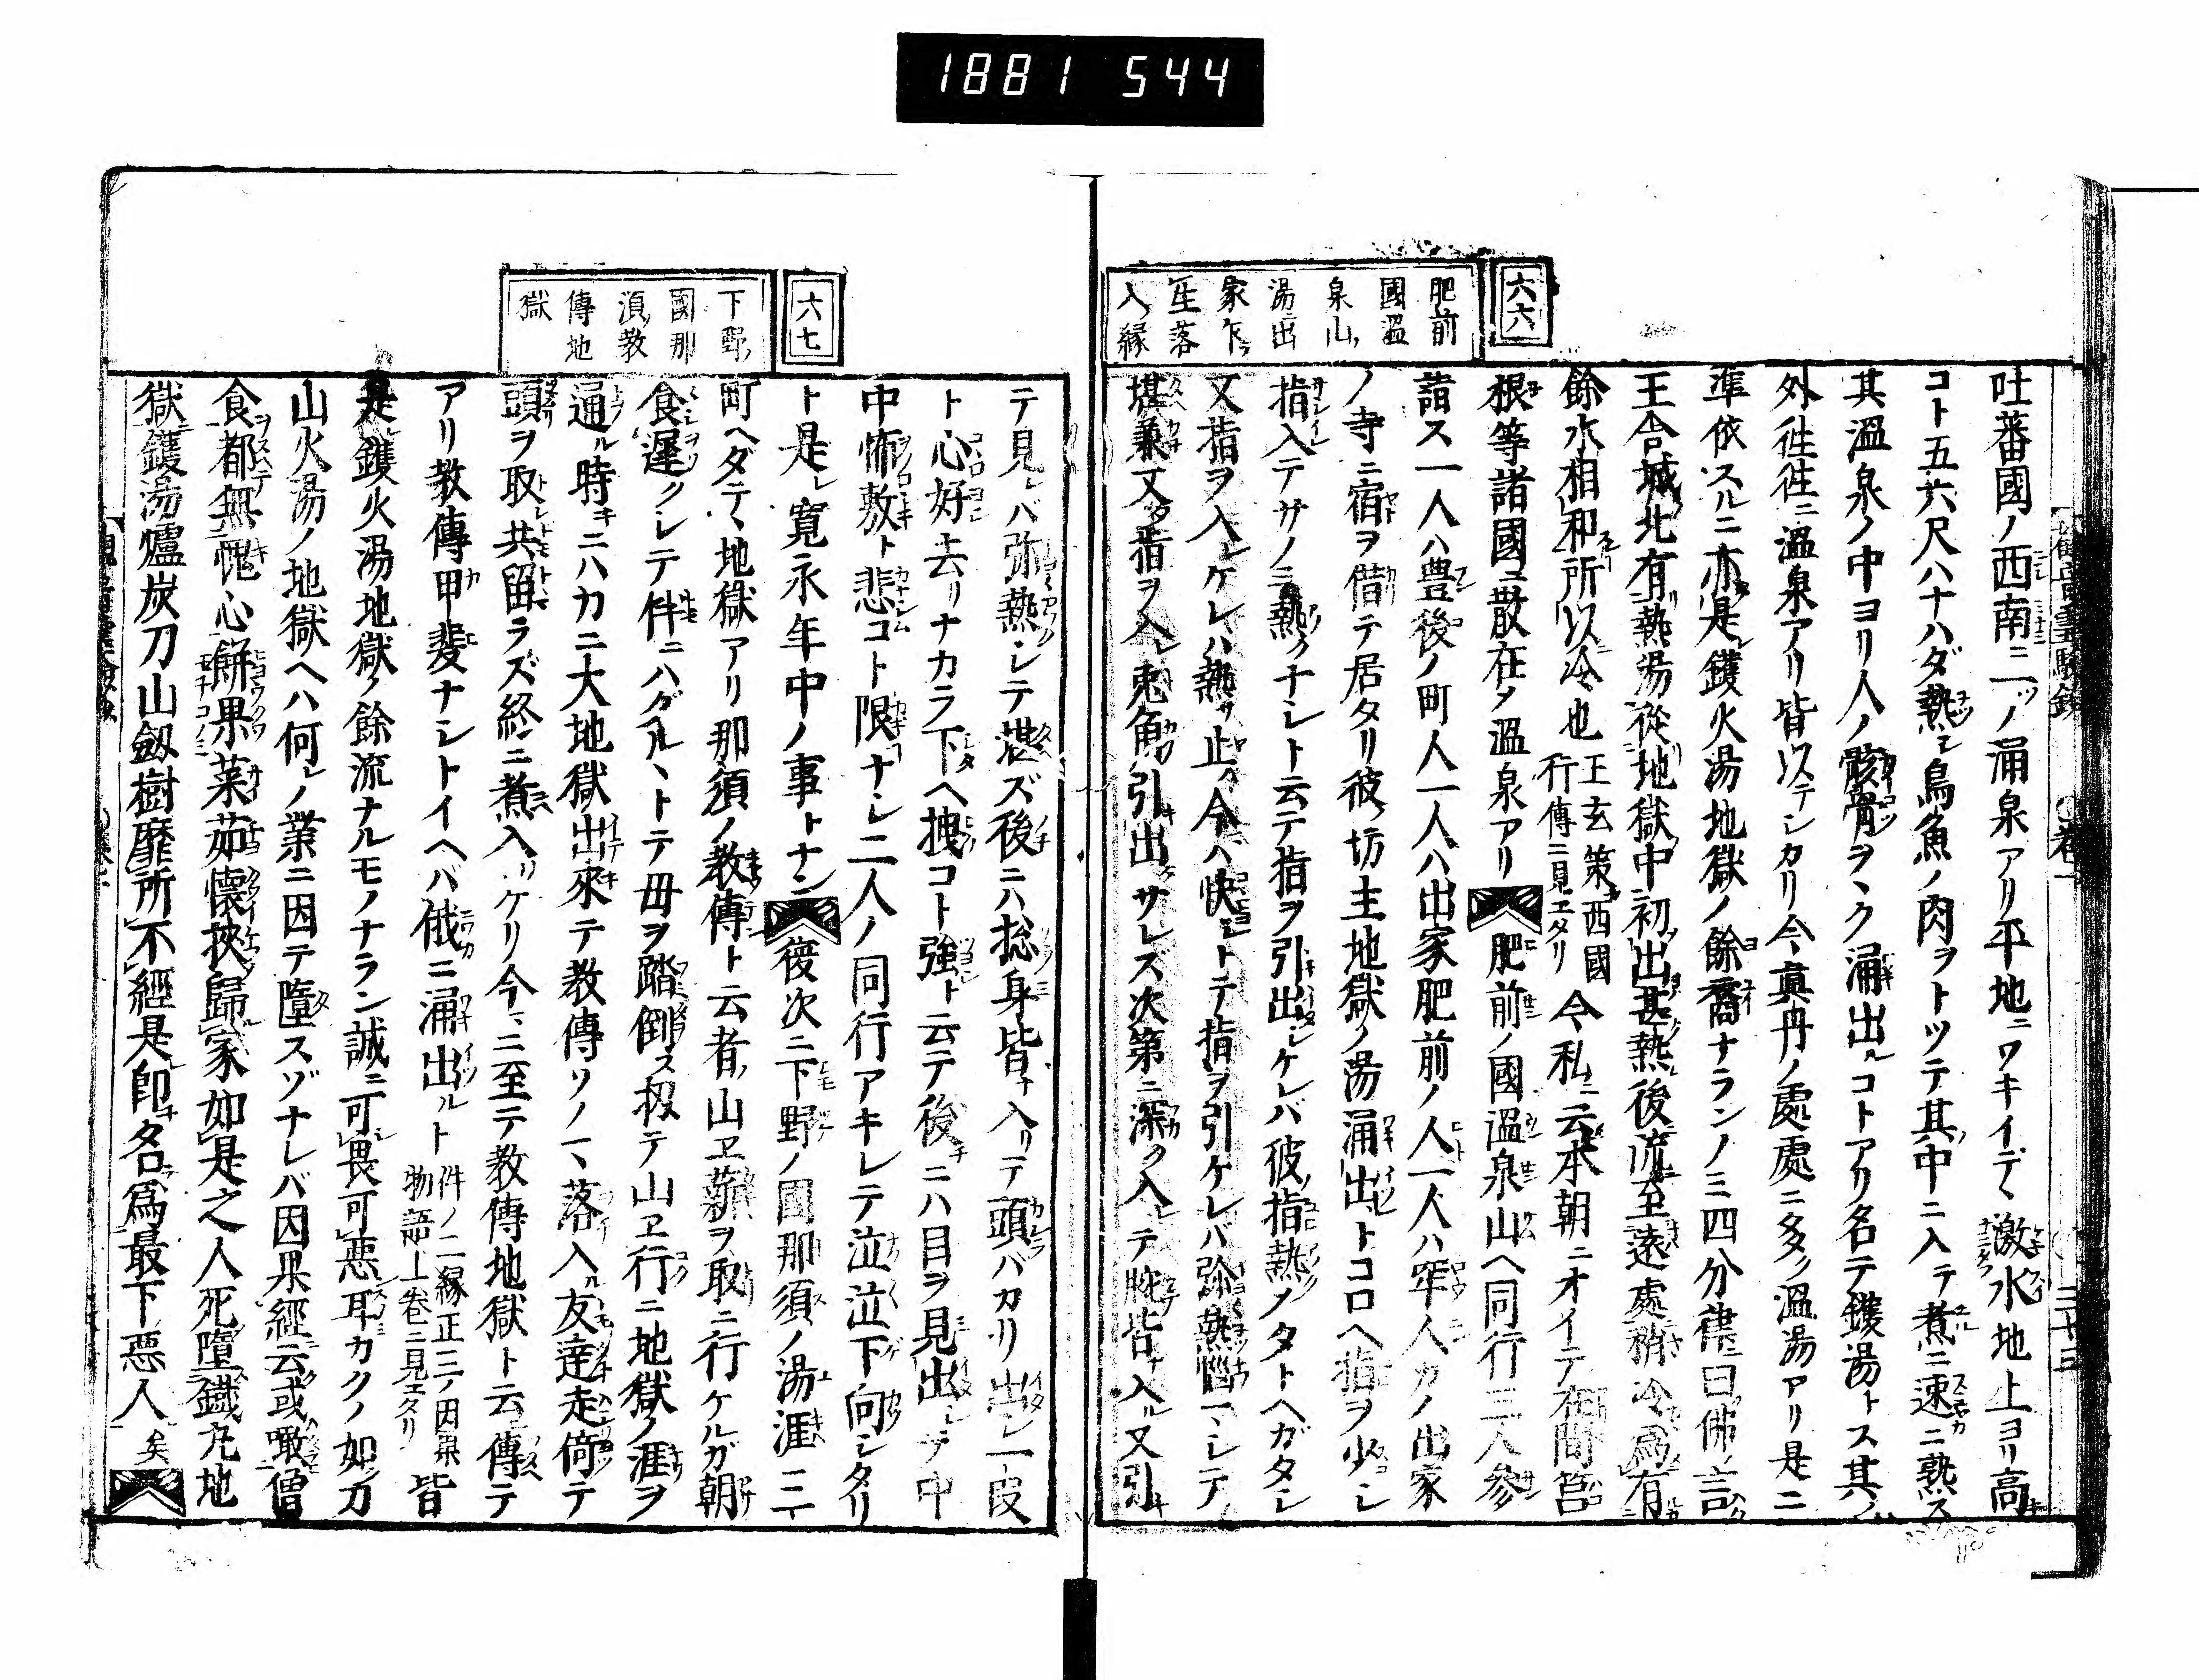 1881 544
六六
肥前
國温
泉山
湯出
家乍
生落
入縁
吐蕃國ノ西南ニ二ツノ涌泉アリ平地ニワキイデヽ激水地上ヨリ高キ
コト五六尺ハナハダ熱シ鳥魚ノ肉ヲトツテ其中ニ入テ煮ニ速ニ熟ス
其温泉ノ中ヨリ人ノ骸骨ヲヽク涌出ルコトアリ名テ鑊湯トス其ノ
外徃徃ニ温泉アリ皆以テシカリ今真丹ノ處處ニ多ク温湯アリ是ニ
準依スルニ亦是レ鑊火湯地獄ノ餘裔ナランノミ四分律ニ曰佛ノ言
王舎城北有熱湯從地獄中初出甚熱後流至遠處稍冷爲有
餘水相和所以冷也 王玄策西國行傳ニ見エタリ 今私ニ云本朝ニオイテ有間筥
根等諸國ニ散在ノ温泉アリ 肥前ノ國温泉山ヘ同行三人參
詣ス一人ハ豊後ノ町人一人ハ出家肥前ノ人一人ハ牢人カノ出家
ノ寺ニ宿ヲ借テ居タリ彼坊主地獄ノ湯涌出トコロヘ指ヲ少シ
指入テサノミ熱クナシト云テ指ヲ引出シケレバ彼指熱ノタトヘガタシ
又指ヲ入レケレハ熱サ止ム今ハ快シトテ指ヲ引ケレバ弥熱惱ヽシテ
堪兼又タ指ヲ入レ兎角引出サレズ次第ニ深ク入レテ腕皆ナ入ル又引
テ見レバ弥熱シテ堪ズ後ニハ捴身皆ナ入リテ頭バカリ出シ一段
ト心好シ去リナカラ下ヘ拽コト強シト云テ後チニハ目ヲ見出シテ中
中怖敷ト悲コト限ナシ二人ノ同行アキレテ泣泣下向シタリ
ト是レ寛永年中ノ事トナン 復次ニ下野ノ國那須ノ湯涯ニ三
町ヘダテヽ地獄アリ那須ノ教傳ト云者山ヱ薪ヲ取ニ行ケルガ朝
食遅クレテ件ニハグルヽトテ母ヲ踏倒ス扨テ山ヱ行ニ地獄ノ涯ヲ
通ル時キニハカニ大地獄出來テ教傳ソノマヽ落入ル友達走倚テ
頭ヲ取共留ラズ終ニ煮入リケリ今ニ至テ教傳地獄ト云傳テ
アリ教傳甲斐ナシトイヘバ俄ニ涌出ルト 件ノ二縁正三ノ因果物語上卷ニ見エタリ 皆
是鑊火湯地獄ノ餘流ナルモノナラン誠ニ可畏可悪耳カクノ如刀
山火湯ノ地獄ヘハ何レノ業ニ因テ墮スゾナレバ因果經云或噉僧
食都無愧心餅果菜茹懷挾歸家如是之人死墮鐵丸地
獄鑊湯爐炭刀山劔樹靡所不經是人即名爲最下惡人 矣
六七
下野
國那
須教
傳地
獄